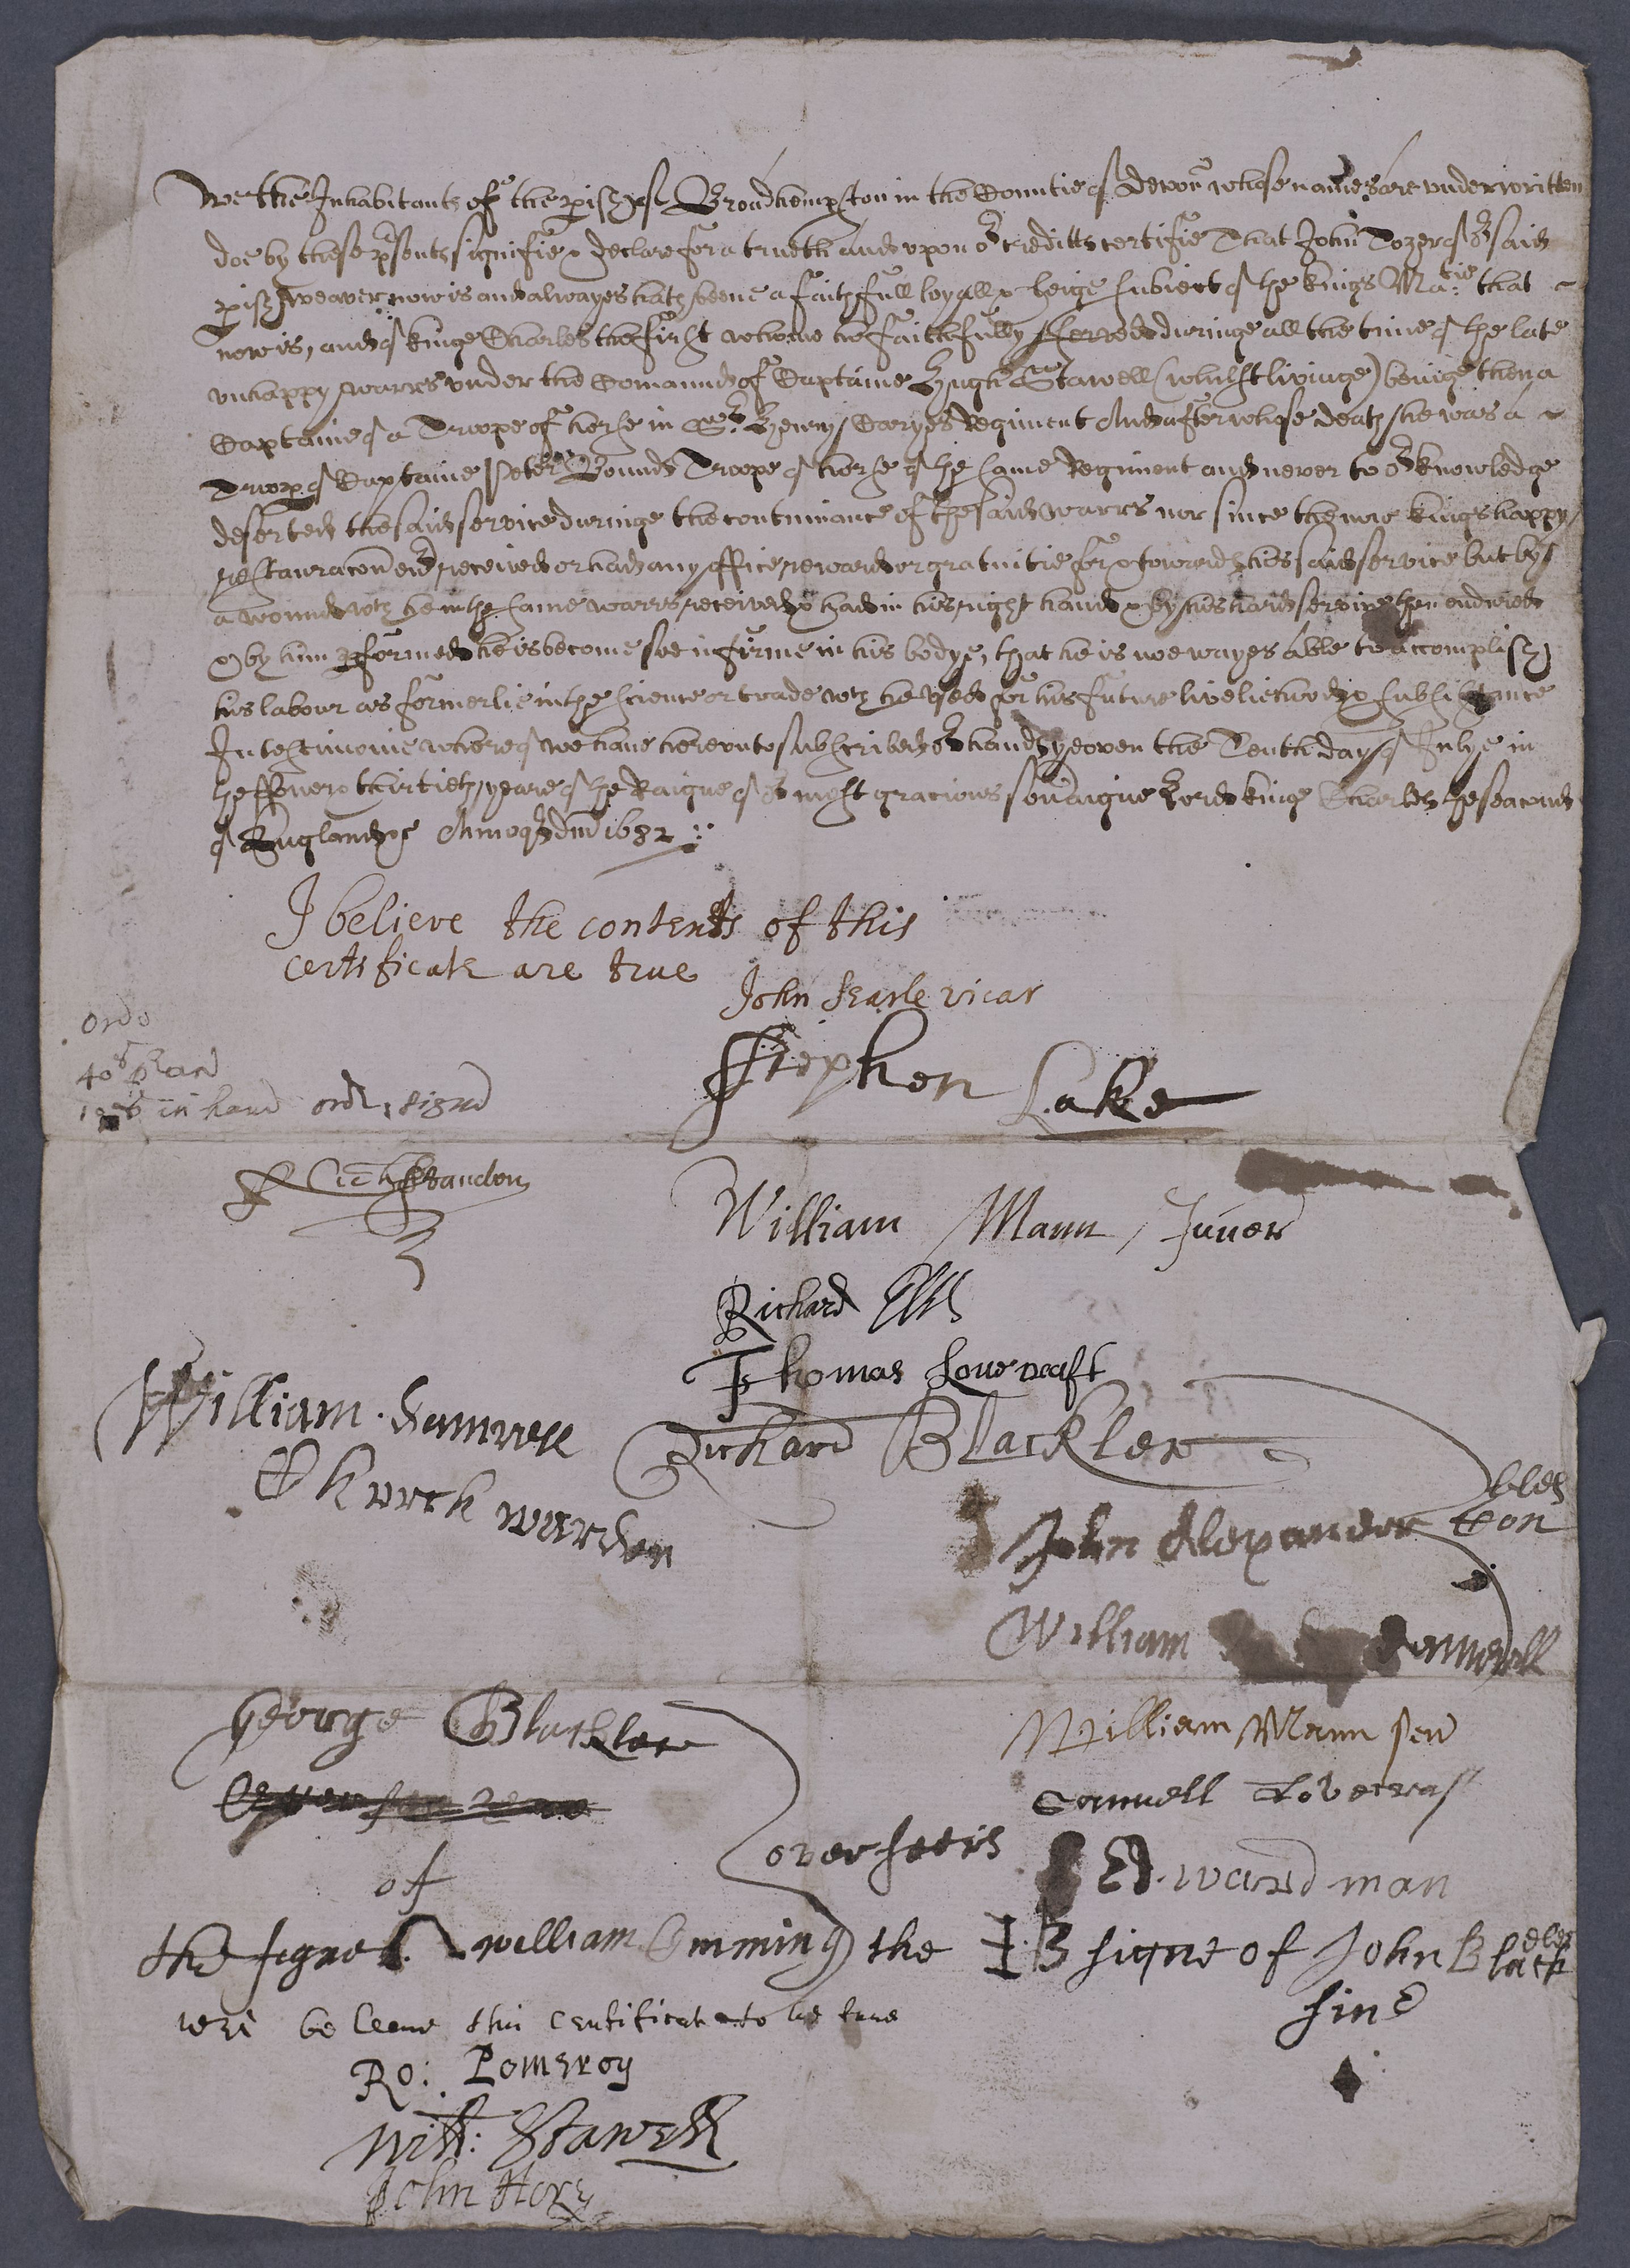 We the Inhabitants of the pish of Broadhempston in the Countie of Devon whose names are underwritten
doe by these psents signifie & declare for a trueth and upon or creditts certifie That John Tozer of or said
pish weaver now is and alwayes hath beene a faithfull loyall & leige subiect of the kings Matie that
now is, and of kinge Charles the first whome he faithfully served duringe all the time of the late
unhappy warrs under the Comaund of Captaine Hugh Stawell (whilst livinge) beinge then a
Captaine of a Troope of horse in Sr Henry Caryes Regiment And after whose death he was a
Troop of Captaine Peter Bounds Troope of horse of the same Regiment and never to or knowledge
deserted the said service duringe the continuance of the said warrs nor since the now kings happy
restauracon ever received or had any office reward or gratuitie for & towards his said service but by
a wound wch he in the same warrs received & had in his right hand & by his hard service then endured
& by him pformed he is become soe infirme in his bodye, that he is noe wayes able to accomplish
his labour as formerlie in the science or trade wch he used for his future liveliehood & subsistance
In testimonie whereof we have hereunto subscribed or hands yeoven the Tenth day of Julye in
the ffower & thirtieth yeare of the Raigne of or most gracious sovaigne Lord kinge Charles the seacond
of England &c Annoq dm 1682
I believe the contents of this
certificate are true
John Searle vicar
Stephen Lake
ordd
40s p an
in hand ordr signd
Rich Standon
William Mann Juner
Richard Ells
Thomas Lovecraft
William Samwell
Church warden
Richard Blackler
John Alexander
William Samwell
George Blackler
overseers
of
William Mann sen
Samuell Lovecraft
Edward man
the signe of william Cmming the IB signe of John Blackeler
sine
wee beleeve this Certificate to be true
Ro: Pomeroy
Will: Stawell
John Hore